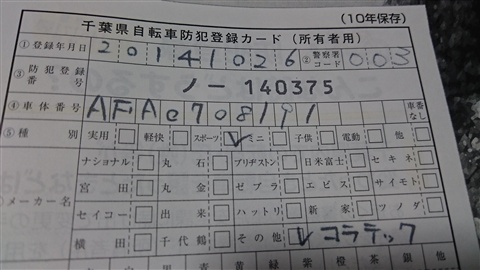 (10年保存)
千葉県自転車防犯登録カード(所有者用)
①登録年月日 20141026 ②警察署コード 003
③防犯登録番号 ノー 140375
④車体番号 AFAC708191 車番なし
⑤種別 実用 軽快 スポーツ レミニ 子供 電動 他
ナショナル 丸石 ブリヂストン 日米富士 セキネ
宮田 丸金 ゼブラ エビス サイモト
のメーカー名 セイコー 出来 ハットリ 新家 ツノダ
横田 千代鶴 その他 レ コラテック
黒 青 黄 茶 銀 他